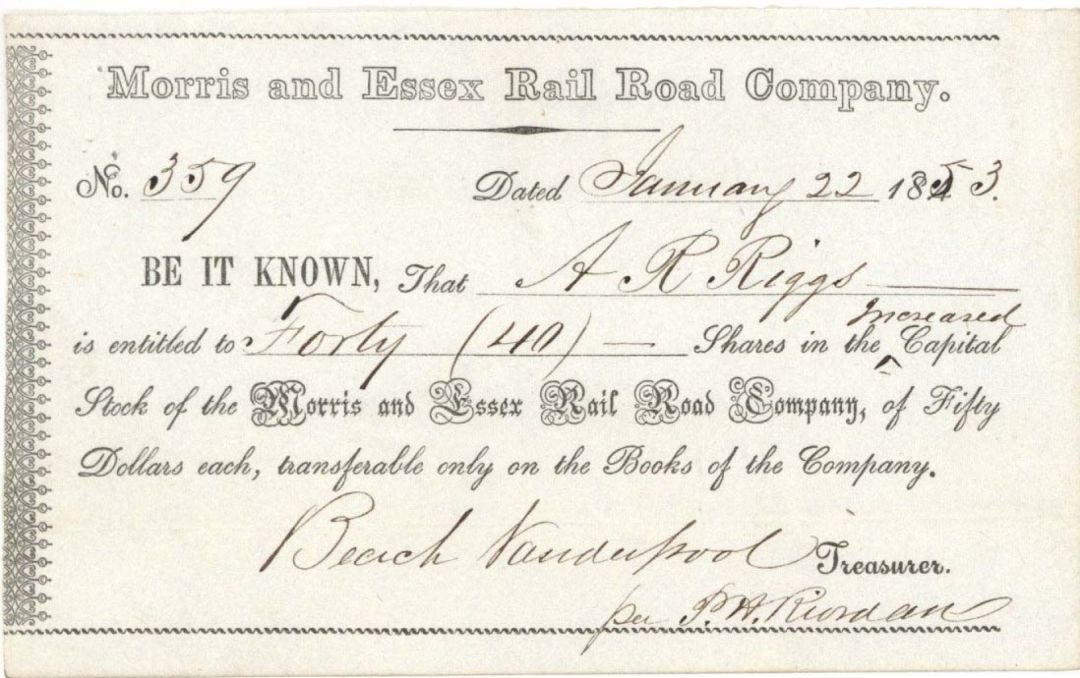 Morris and Essex Rail Road Company.
No. 359 Dated January 22 1853.
BE IT KNOWN, That A R Riggs
is entitled to Forty (40) — Shares in the ^ Increased Capital
Stock of the Morris and Essex Rail Road Company, of Fifty
Dollars each, transferable only on the Books of the Company.
Beach Vanderpool Treasurer.
per P. H. Riordan